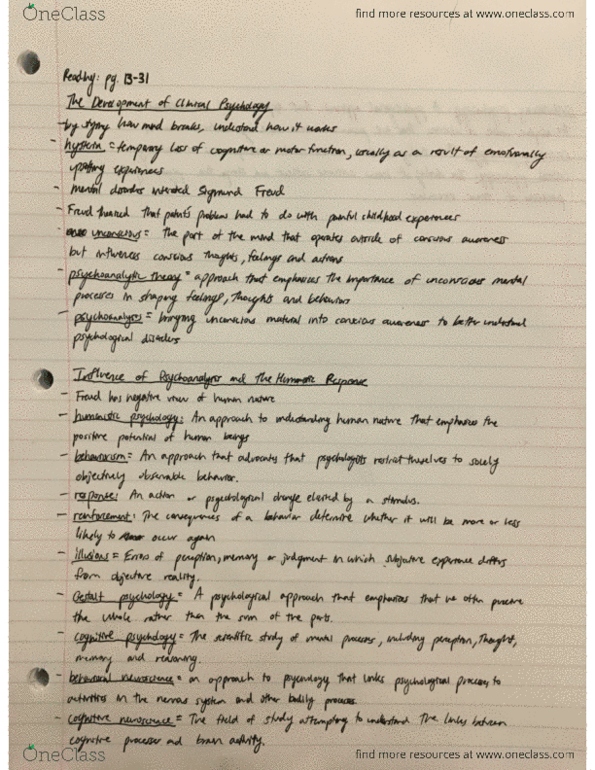 OneClass
find more resources at www.oneclass.com
Reading: pg. 13-31
The Development of Clinical Psychology
- by stying how mind breaks, understand how it works
- hysteria = temporary loss of cognitive or motor function, usually as a result of emotionally
upsetting experiences
- mental disorders interested Sigmund Freud
- Freud theorized that patients problems had to do with painful childhood experiences
- unconscious = The part of the mind that operates outside of conscious awareness
but influences conscious thoughts, feelings and actions
- psychoanalytic theory = approach that emphasizes the importance of unconscious mental
processes in shaping feelings, thoughts and behaviors
- psychoanalysis = bringing unconscious material into conscious awareness to better understand
psychological disorders
Influence of Psychoanalysis and The Humanistic Response
- Freud has negative view of human nature
- humanistic psychology: An approach to understanding human nature that emphasizes the
positive potential of human beings
- behaviourism = An approach that advocates that psychologists restrict themselves to solely
objectively observable behavior.
- response: An action or psychological change elicited by a stimulus.
- reinforcement: The consequences of a behavior determine whether it will be more or less
likely to occur again
- illusions = Errors of perception, memory or judgment in which subjective experience differs
from objective reality.
- Gestalt psychology = A psychological approach that emphasizes that we often perceive
the whole rather than the sum of the parts.
- cognitive psychology = The scientific study of mental processes, including perception, thought,
memory and reasoning.
- behavioural neuroscience = an approach to psychology that links psychological processes to
activities in the nervous system and other bodily processes
- cognitive neuroscience = The field of study attempting to understand the links between
cognitive processes and brain activity.
OneClass
find more resources at www.oneclass.com